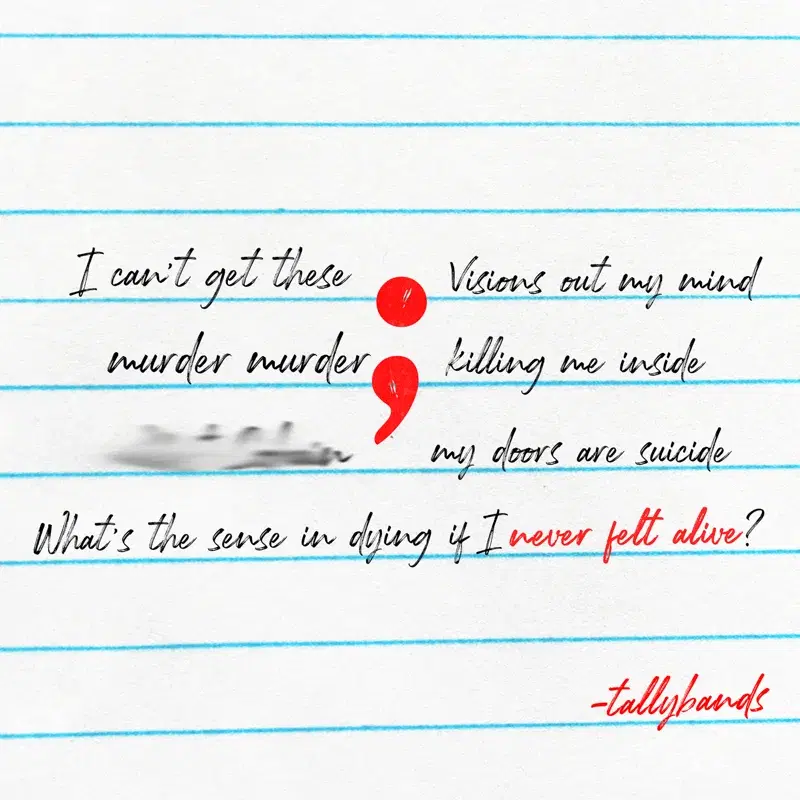 I can't get these ; Visions out my mind
murder murder killing me inside
my doors are suicide
What's the sense in dying if I never felt alive?
-tallybands